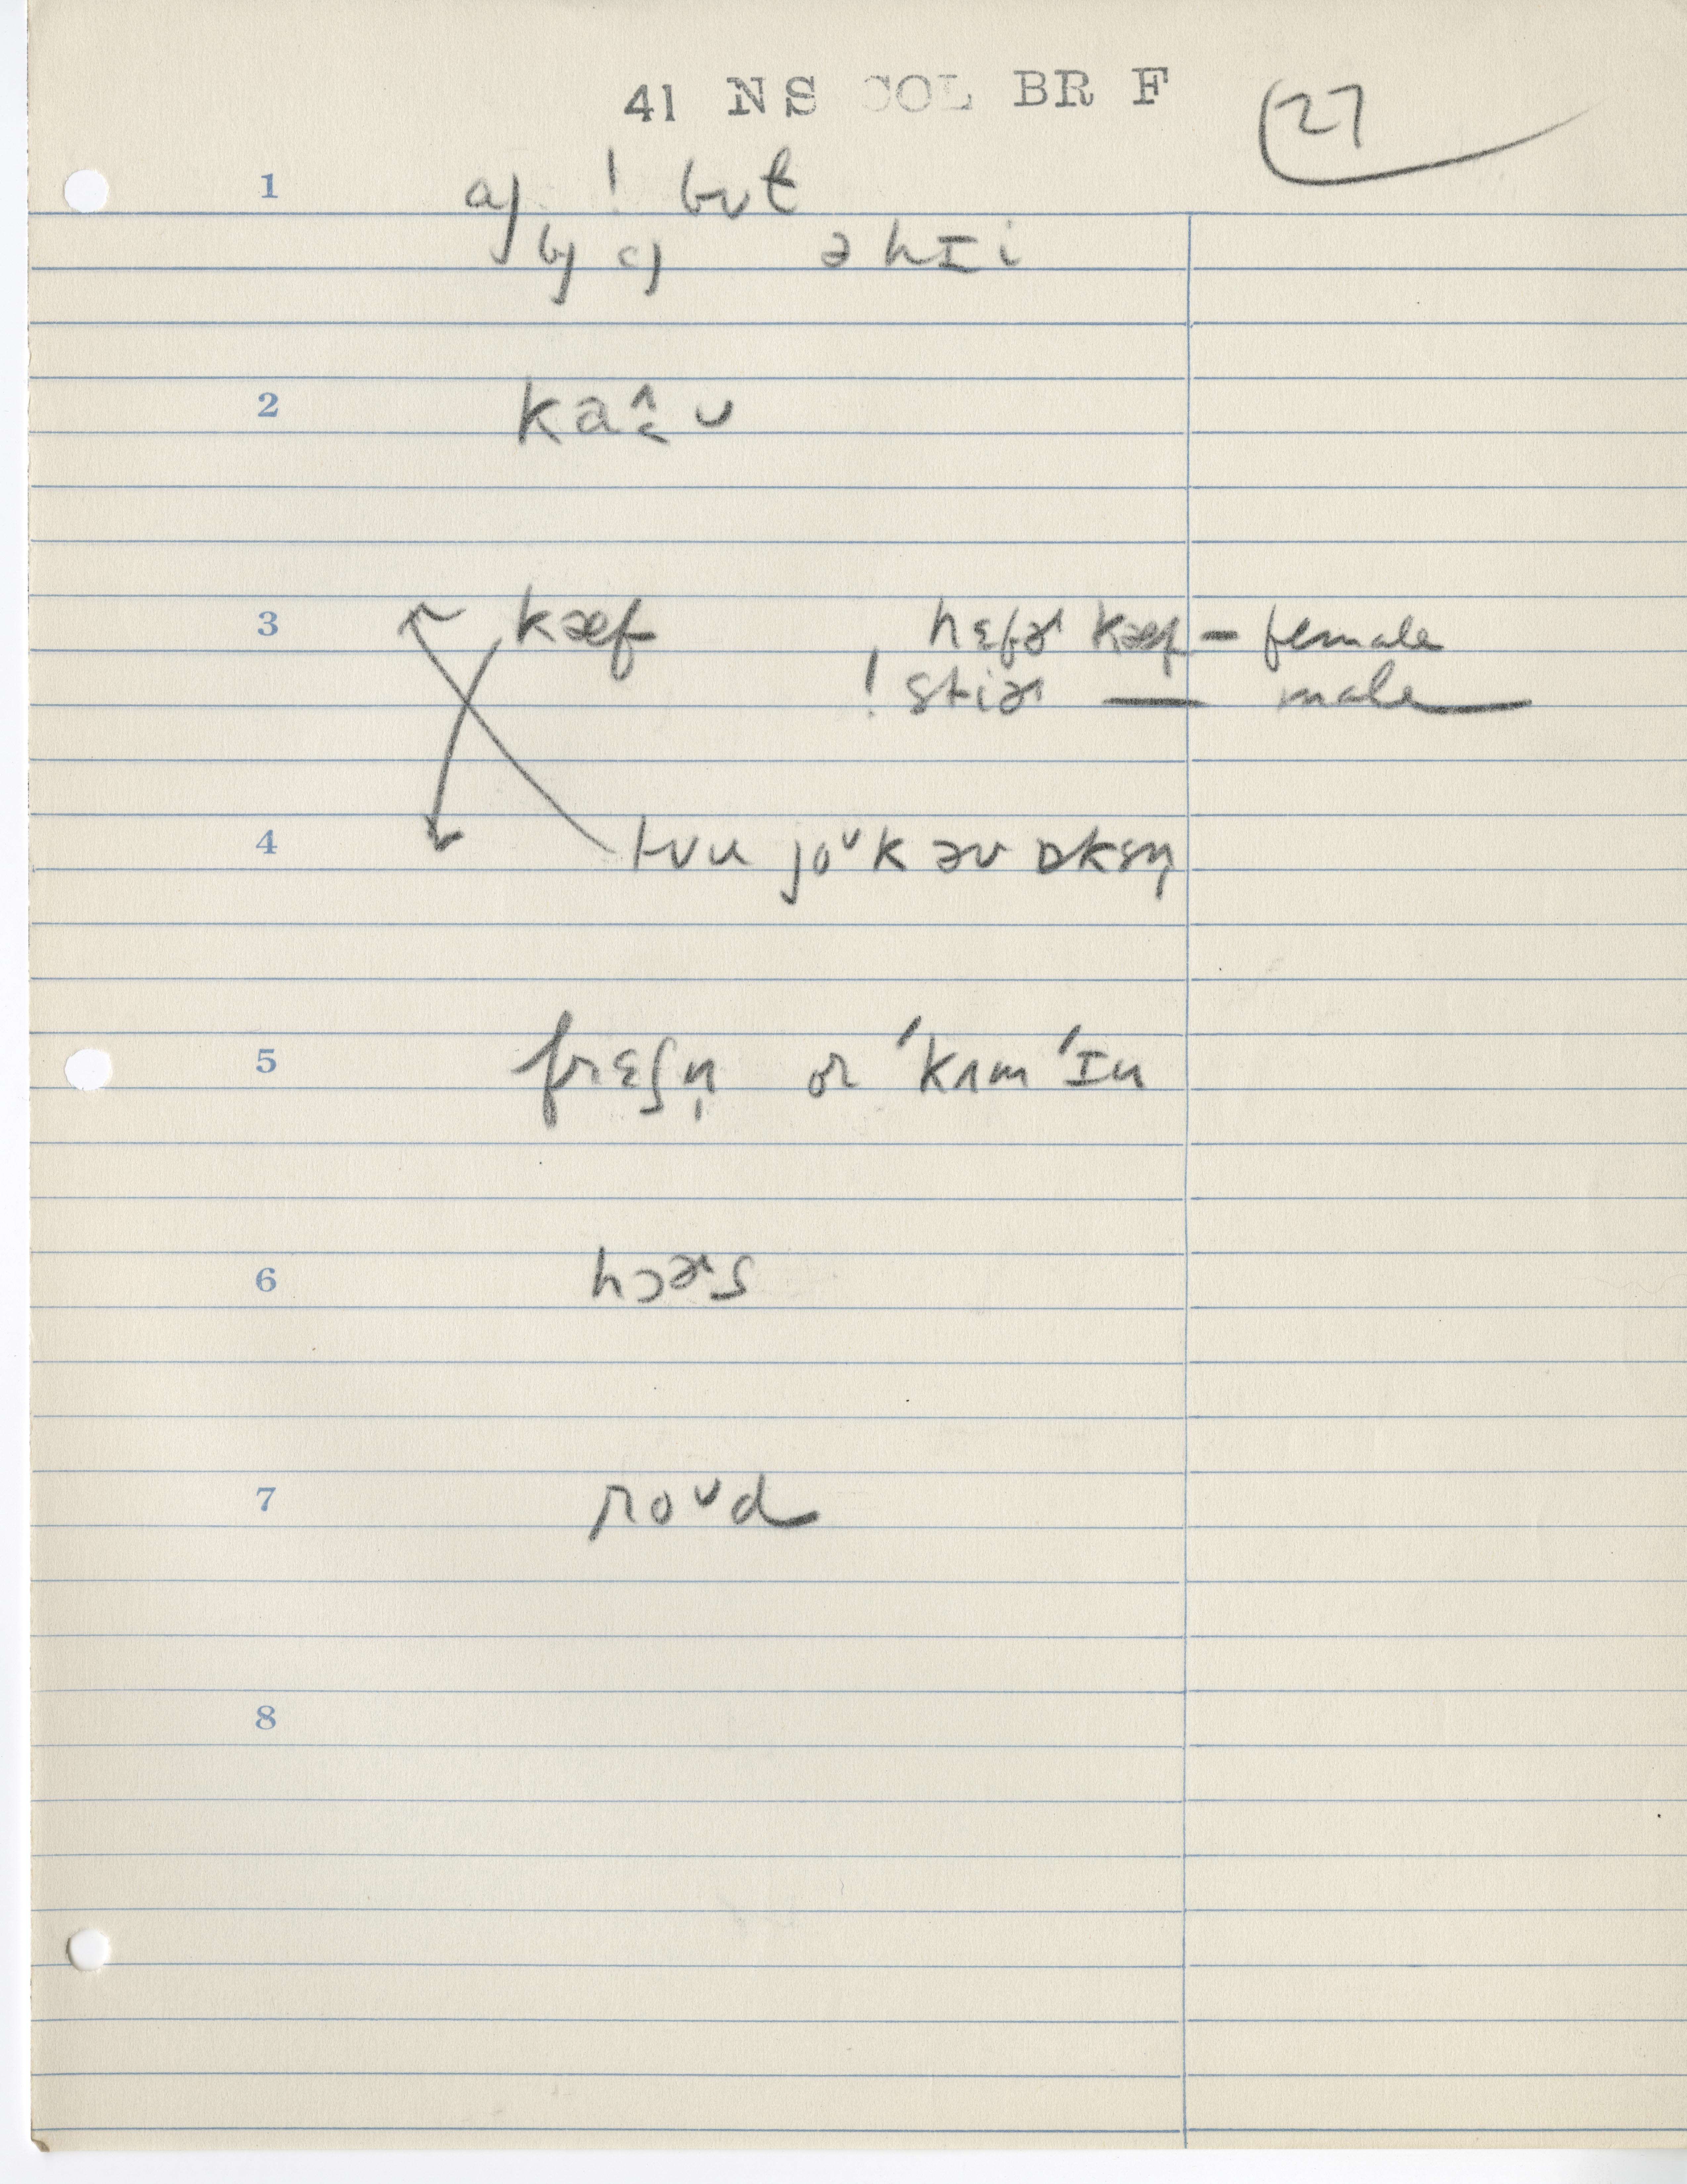 41 NS COL BR F
27
1 a) ! bʊt
b) c) ə hɪi
2 kaʊ
3 kæf hɛfɚ kæf – female
! stiɚ — male
4 tʊu joᶷk əv ɒksn̩
5 frɛʃn̩ or 'kʌm 'ɪn
6 hɔɚs
7 roᶷd
8